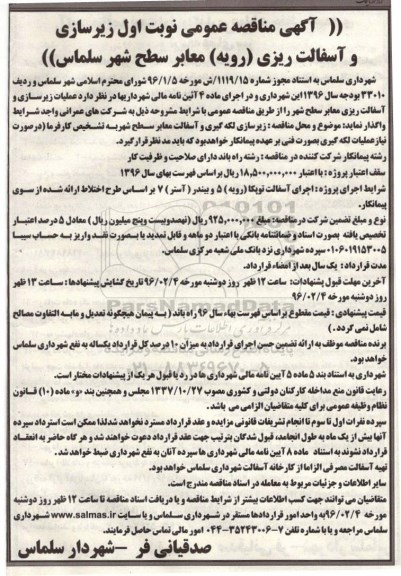 (( آگهی مناقصه عمومی نوبت اول زیرسازی
و آسفالت ریزی (رویه) معابر سطح شهر سلماس))
شهرداری سلماس به استناد مجوز شماره ۱۱۱۹/۱۵/ش مورخه ۹۶/۱/۵ شورای محترم اسلامی شهر سلماس و ردیف
۳۳۰۱۰ بودجه سال ۱۳۹۶ این شهرداری و در اجرای ماده ۴ آئین نامه مالی شهرداریها در نظر دارد عملیات زیرسازی و
آسفالت ریزی معابر سطح شهر را از طریق مناقصه عمومی با شرایط مشروحه ذیل به شرکت های عمرانی واجد شرایط
واگذار نماید: موضوع و محل مناقصه : زیرسازی لکه گیری و آسفالت معابر سطح شهر به تشخیص کارفرما (در صورت
نیاز عملیات لکه گیری بصورت فنی بر عهده پیمانکار خواهد بود که باید مد نظر قرار گیرد.
رشته پیمانکار شرکت کننده در مناقصه : رشته راه باند دارای صلاحیت و ظرفیت کار
سقف اعتبار پروژه : با اعتبار ۱۸,۵۰۰,۰۰۰,۰۰۰ ریال بر اساس فهرست بهای سال ۱۳۹۶
شرایط اجرای پروژه : اجرای آسفالت توپکا (رویه) ۵ و بیندر ( آستر) ۷ بر اساس طرح اختلاط ارائه شده از سوی
پیمانکار.
نوع و مبلغ تضمین شرکت در مناقصه: مبلغ ۹۲۵,۰۰۰,۰۰۰ ریال (نهصد و بیست و پنج میلیون ریال) معادل ۵ درصد اعتبار
تخصیص یافته بصورت اسناد و ضمانتنامه بانکی با اعتبار دو ماهه و قابل تمدید یا بصورت نقد واریز به حساب سیبا
۰۱۰۶۰۱۹۱۵۳۰۰۵ سپرده شهرداری نزد بانک ملی شعبه مرکزی سلماس.
مدت قرارداد : یک سال بعد از امضاء قرارداد.
آخرین مهلت قبول پیشنهادات: ساعت ۱۲ ظهر روز دوشنبه مورخه ۹۶/۰۲/۴ تاریخ گشایش پیشنهادها : ساعت ۱۳ ظهر
روز دوشنبه مورخه ۹۶/۰۲/۴
قیمت پیشنهادی : قیمت مقطوع بر اساس فهرست بهاء سال ۹۶ راه باند ( به پیمان هیچگونه تعدیل و مابه التفاوت مصالح
شامل نمی گردد )
برنده مناقصه موظف به ارائه تضمین حسن اجرای قرارداد به میزان ۱۰ درصد کل قرارداد یکساله به نفع شهرداری سلماس
خواهد بود.
شهرداری به استناد بند ۵ ماده ۵ آیین نامه مالی شهرداری ها در رد یا قبول هر یک از پیشنهادات مختار است.
رعایت قانون منع مداخله کارکنان دولتی و کشوری مصوب ۱۳۳۷/۱۰/۲۷ مجلس و همچنین بند «و» ماده (۱۰) قانون
نظام وظیفه عمومی برای کلیه متقاضیان الزامی می باشد.
سپرده نفرات اول تا سوم تا انجام تشریفات قانونی مزایده و عقد قرارداد مسترد نخواهد شد لذا ممکن است استرداد سپرده
آنها بیش از یک ماه به طول انجامد، قبول شدگان بترتیب جهت عقد قرارداد دعوت خواهند شد و هر گاه حاضر به انعقاد
قرارداد نشوند به استناد ماده ۸ آیین نامه مالی شهرداری ها سپرده آنان به نفع شهرداری ضبط خواهد شد.
تهیه آسفالت مصرفی الزاما از کارخانه آسفالت شهرداری سلماس خواهد بود.
سایر اطلاعات و جزئیات مربوط به معامله در اسناد مناقصه مندرج است.
متقاضیان می توانند جهت کسب اطلاعات بیشتر از شرایط مناقصه و یا دریافت اسناد مناقصه تا ساعت ۱۲ ظهر روز دوشنبه
مورخه ۹۶/۰۲/۴ به واحد امور قراردادها مستقر در شهرداری سلماس و یا سایت www.salmas.ir شهرداری
سلماس مراجعه و یا با شماره تلفن ۷-۳۵۲۴۳۰۰۶-۰۴۴ امور مالی تماس حاصل فرمایند.
صدقیانی فر – شهردار سلماس